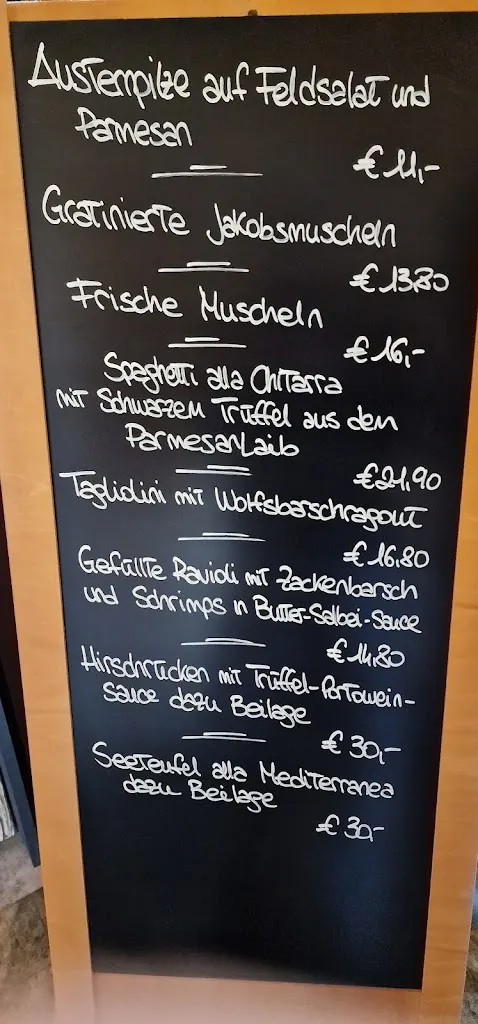 Austernpilze auf Feldsalat und
Parmesan
€ 11,-
Gratinierte Jakobsmuscheln
€ 13,80
Frische Muscheln
€ 16,-
Spaghetti alla Chitarra
mit Schwarzem Trüffel aus dem
Parmesanlaib
€ 21,90
Taglidini mit Wolfsbarschragout
€ 16,80
Gefüllte Ravioli mit Zackenbarsch
und Schrimps in Butter-Salbei-Sauce
€ 14,80
Hirschrücken mit Trüffel-Portowein-
sauce dazu Beilage
€ 30,-
Seeteufel alla Mediterranea
dazu Beilage
€ 30,-